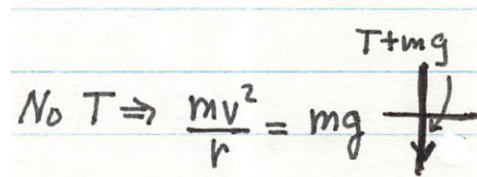 T+mg
No T ⇒ mv²/r = mg